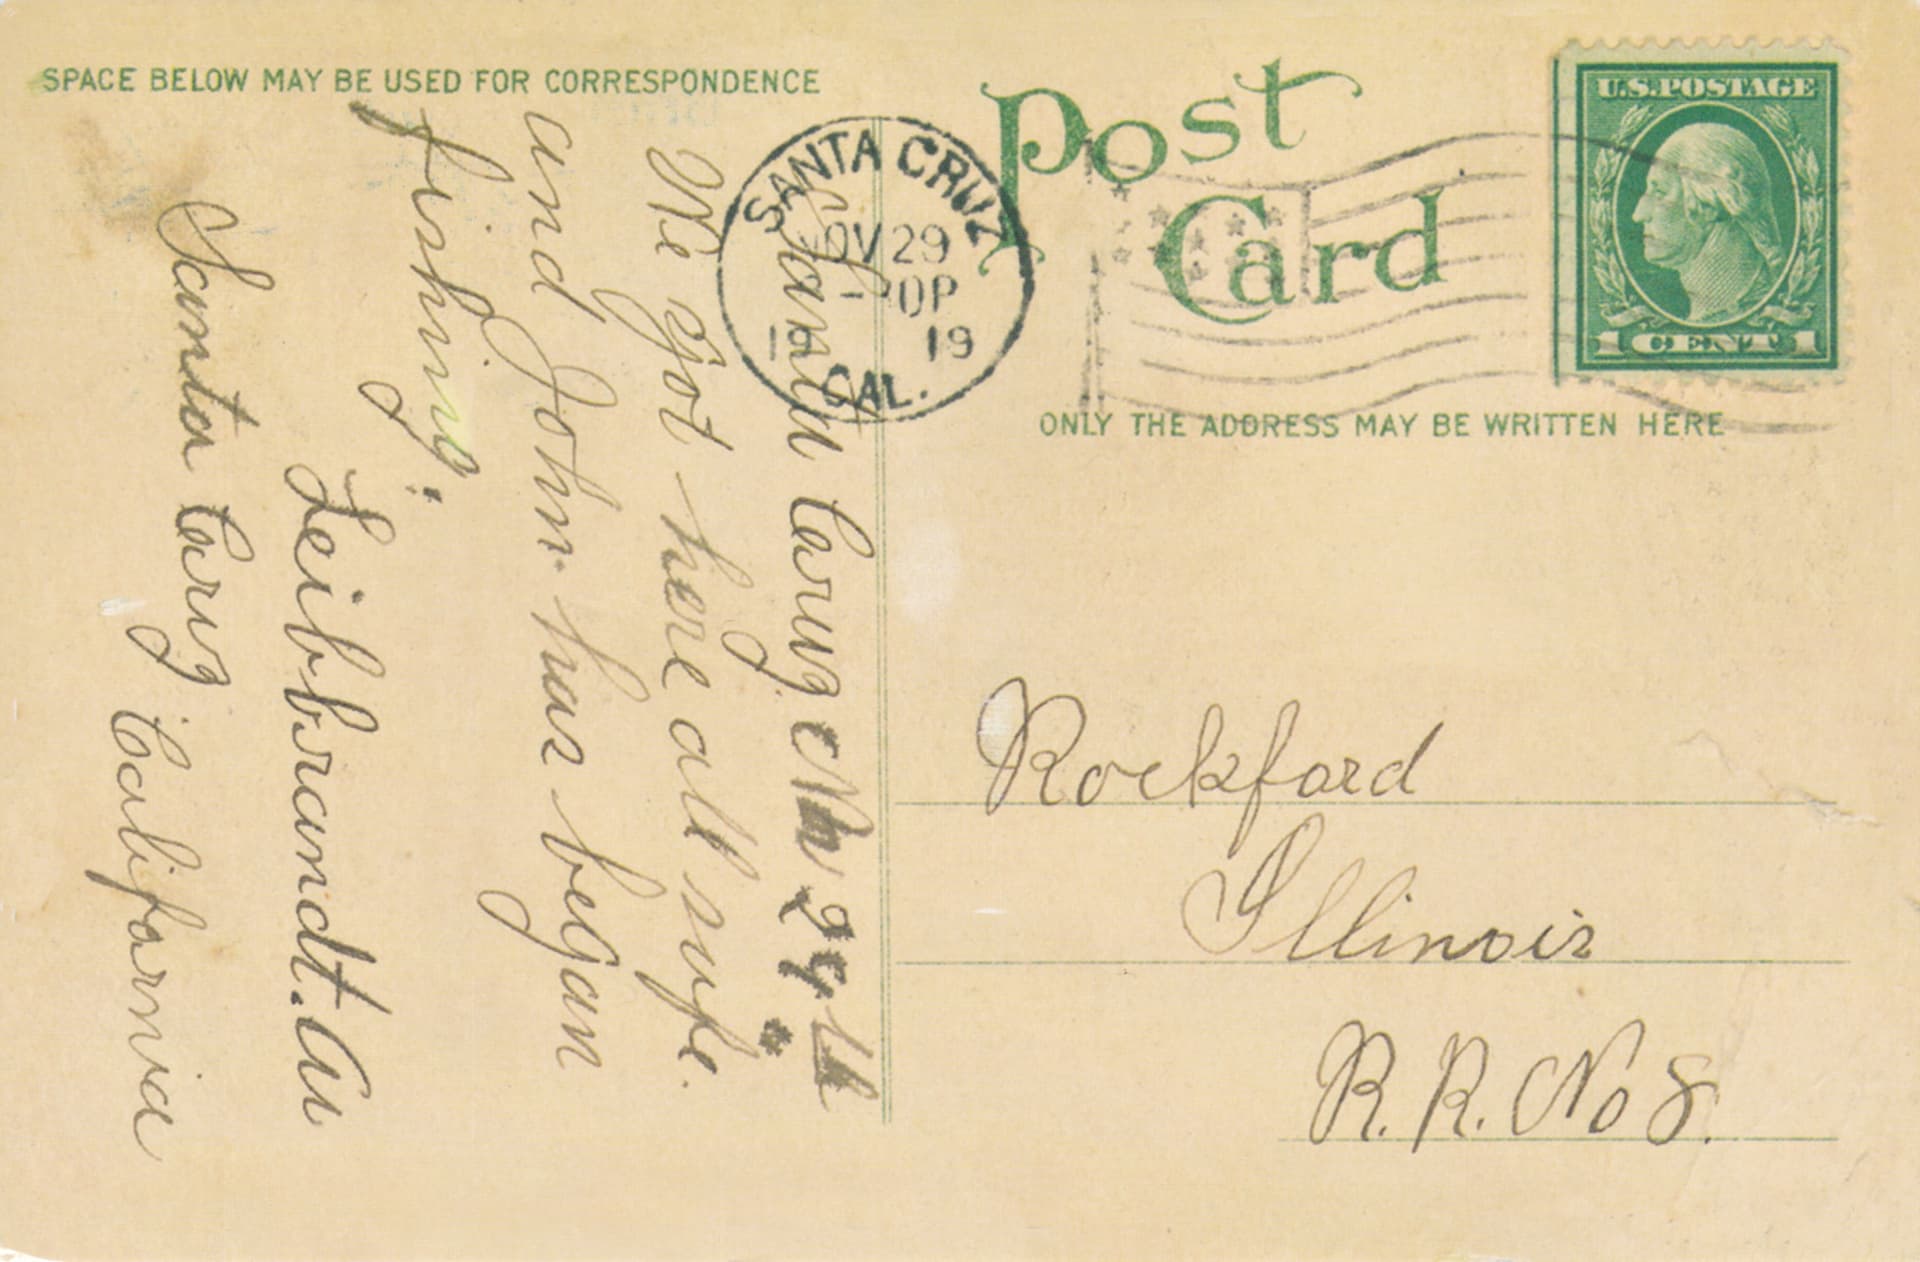 SPACE BELOW MAY BE USED FOR CORRESPONDENCE
Post
Card
U.S.POSTAGE
1 CENT 1
SANTA CRUZ
NOV 29
19 19
CAL.
ONLY THE ADDRESS MAY BE WRITTEN HERE
Santa Cruz Nov 29th
We got here all safe.
and John has began
fishing.
Leibbrandt. Av
Santa Cruz California
Rockford
Illinois
R. R. No 8.